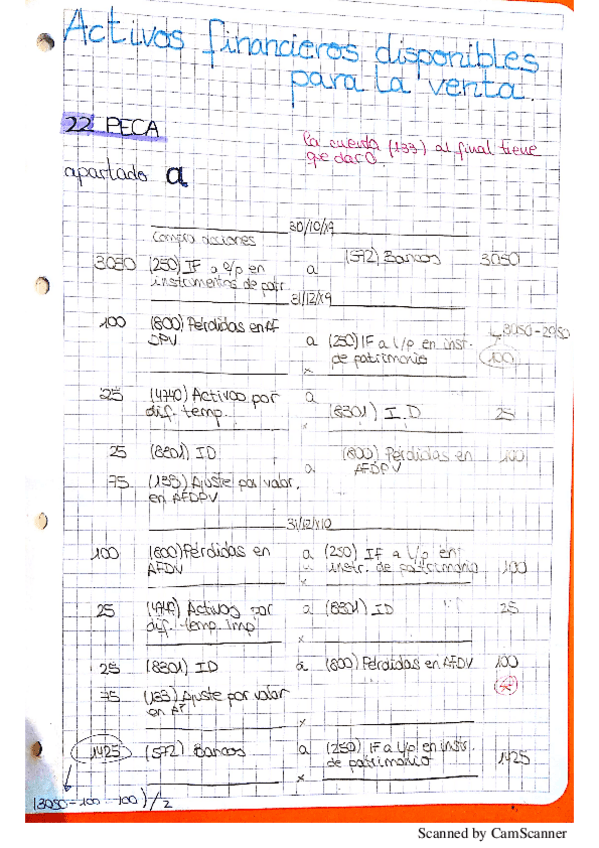 Activos financieros disponibles
para la venta.
22 PECA
La cuenta (133) al final tiene
que dar 0.
apartado a
30/10/x9
Compra acciones
3050 (250) IF a l/p en a (572) Bancos 3050
instrumentos de patr.
31/12/x9
100 (800) Pérdidas en AF a (250) IF a l/p en instr. 3050-2950
DPV de patrimonio 100
x
25 (4740) Activos por a
dif. temp. (8301) I.D 25
25 (8301) ID (800) Pérdidas en 100
75 (133) Ajuste por valor. a AFDPV
en AFDPV
31/12/x10
100 (800) Pérdidas en a (250) IF a l/p en
AFDV instr. de patrimonio 100
25 (4740) Activos por a (8301) ID 25
dif. temp. imp
x
25 (8301) ID a (800) Pérdidas en AFDV 100
75 (133) Ajuste por valor
en AF
x
1425 (572) Bancos a (250) IF a l/p en instr. 1425
de patrimonio
x
(3050-100-100)/2
Scanned by CamScanner